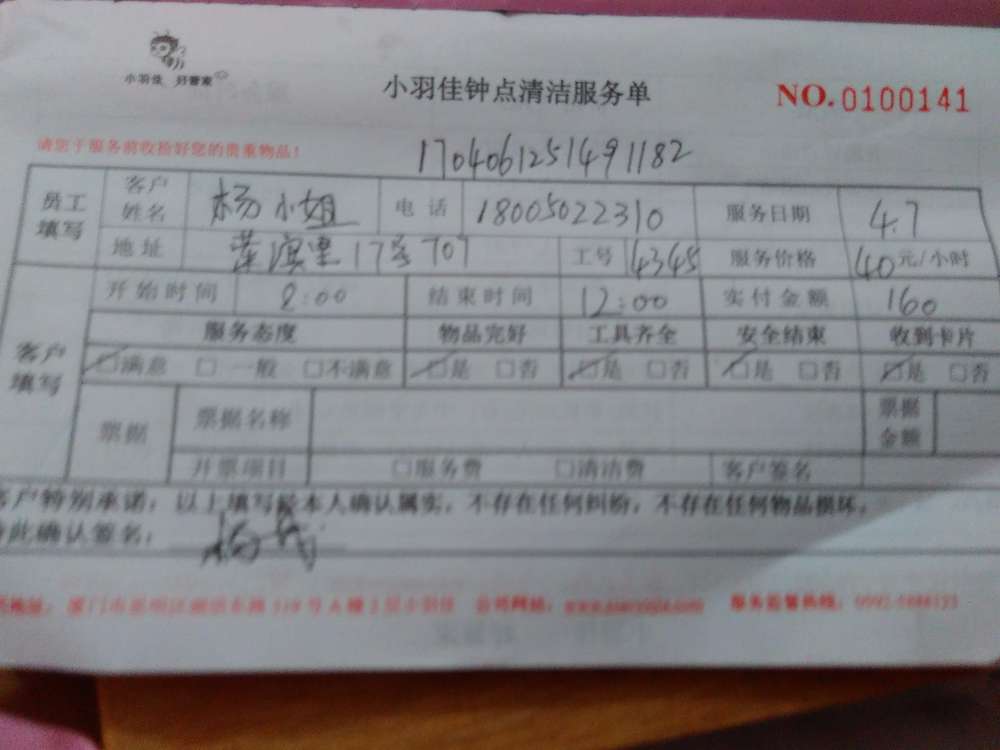 小羽佳 好管家
小羽佳钟点清洁服务单
NO.0100141
请您于服务前收拾好您的贵重物品！
1704061251491182
员工填写 客户姓名 杨小姐 电话 18005022310 服务日期 4.7
地址 莲滨里17号707 工号 4345 服务价格 40元/小时
客户填写 开始时间 8:00 结束时间 12:00 实付金额 160
服务态度 物品完好 工具齐全 安全结束 收到卡片
☑满意 □一般 □不满意 ☑是 □否 ☑是 □否 ☑是 □否 ☑是 □否
票据 票据名称 票据金额
开票项目 □服务费 □清洁费 客户签名
客户特别承诺：以上填写经本人确认属实，不存在任何纠纷，不存在任何物品损坏，
特此确认签名： 杨
公司网站： 服务监督热线：